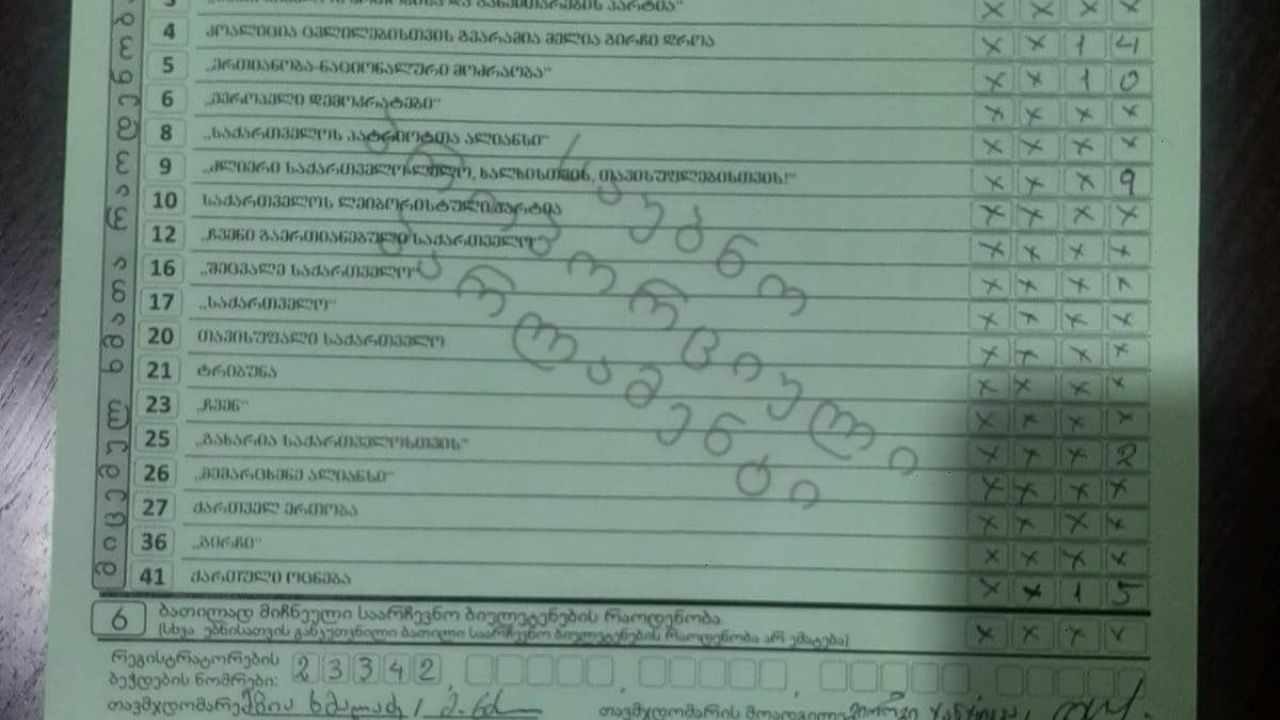 4 კოალიცია ცვლილებისთვის გვარამია მელია გირჩი დროა X X 1 4
5 „ერთიანობა-ნაციონალური მოძრაობა“ X X 1 0
6 „ევროპული დემოკრატები“ X X X X
8 „საქართველოს პატრიოტთა ალიანსი“ X X X X
9 „ძლიერი საქართველო-ლელო, ხალხისთვის, თავისუფლებისთვის!“ X X X 9
10 საქართველოს ლეიბორისტული პარტია X X X X
12 „ჩვენი გაერთიანებული საქართველო“ X X X X
16 „შეცვალე საქართველო“ X X X X
17 „საქართველო“ X X X X
20 თავისუფალი საქართველო X X X X
21 ტრიბუნა X X X X
23 „ჩვენ“ X X X X
25 „გახარია საქართველოსთვის“ X X X 2
26 „მემარცხენე ალიანსი“ X X X X
27 ქართველ ერთობა X X X X
36 „გირჩი“ X X X X
41 ქართული ოცნება X X 1 5
6 ბათილად მიჩნეული საარჩევნო ბიულეტენების რაოდენობა X X X X
(სხვა უბნისათვის განკუთვნილი ბათილი საარჩევნო ბიულეტენების რაოდენობა არ ემატება)
რეგისტრატორების
ბეჭდების ნომრები: 2 3 3 4 2
თავმჯდომარე თავმჯდომარის მოადგილე